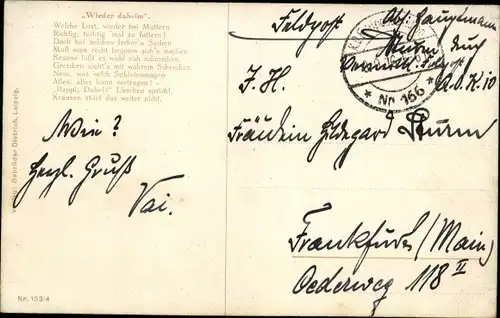 „Wieder daheim“.
Welche Lust, wieder bei Muttern
Richtig, tüchtig 'mal zu futtern!
Doch bei solchen lecker'n Sachen
Muß man recht bequem sich's machen.
Krause läßt es wohl sich schmecken.
Gretchen sieht's mit wahrem Schrecken.
Nein, was solch Soldatenmagen
Alles, alles kann vertragen! –
„Happi, Dabei!“ Lieschen spricht.
Krausen stört das weiter nicht.
Verlag: Gebrüder Dietrich, Leipzig.
Wie?
Herzl. Gruß
Vai.
Nr. 153/4
Feldpost
Abs: Hauptmann
Sturm
A.O.K. 10
* Nr 166 *
F. H.
Fräulein Hildegard Sturm
Frankfurt (Main)
Oederweg 118 II